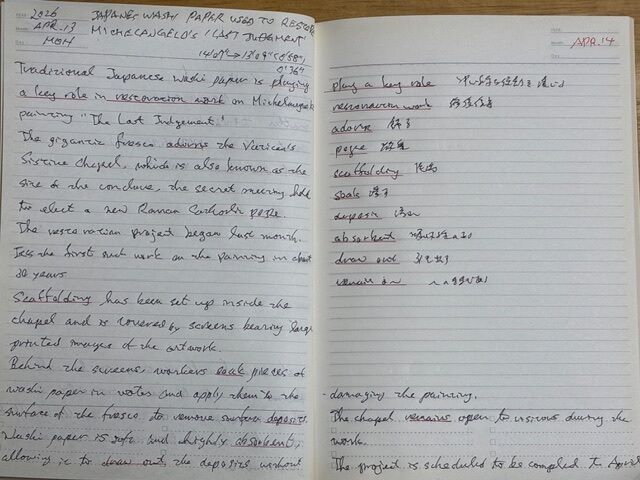 2026
APR.13
MON
JAPANES WASHI PAPER USED TO RESTORE
MICHELANGELO'S "LAST JUDGMENT"
14'07" → 13'09" (0'58")
0'36"
Traditional Japanese washi paper is playing
a key role in restoration work on Michelangelo's
painting "The Last Judgement."
The gigantic fresco adorns the Vatican's
Sistine Chapel, which is also known as the
site of the conclave, the secret meeting held
to elect a new Roman Catholic pope.
The restoration project began last month.
It's the first such work on the painting in about
30 years
Scaffolding has been set up inside the
chapel and is covered by screens bearing large
printed images of the artwork.
Behind the screens, workers soak pieces of
washi paper in water and apply them to the
surface of the fresco to remove surface deposits.
Washi paper is soft and highly absorbent,
allowing it to draw out the deposits without
APR.14
play a key role
restoration work
adorn
pope
scaffolding
soak
deposit
absorbent
draw out
remain on
damaging the painting.
The chapel remains open to visitors during the
work.
The project is scheduled to be completed to April